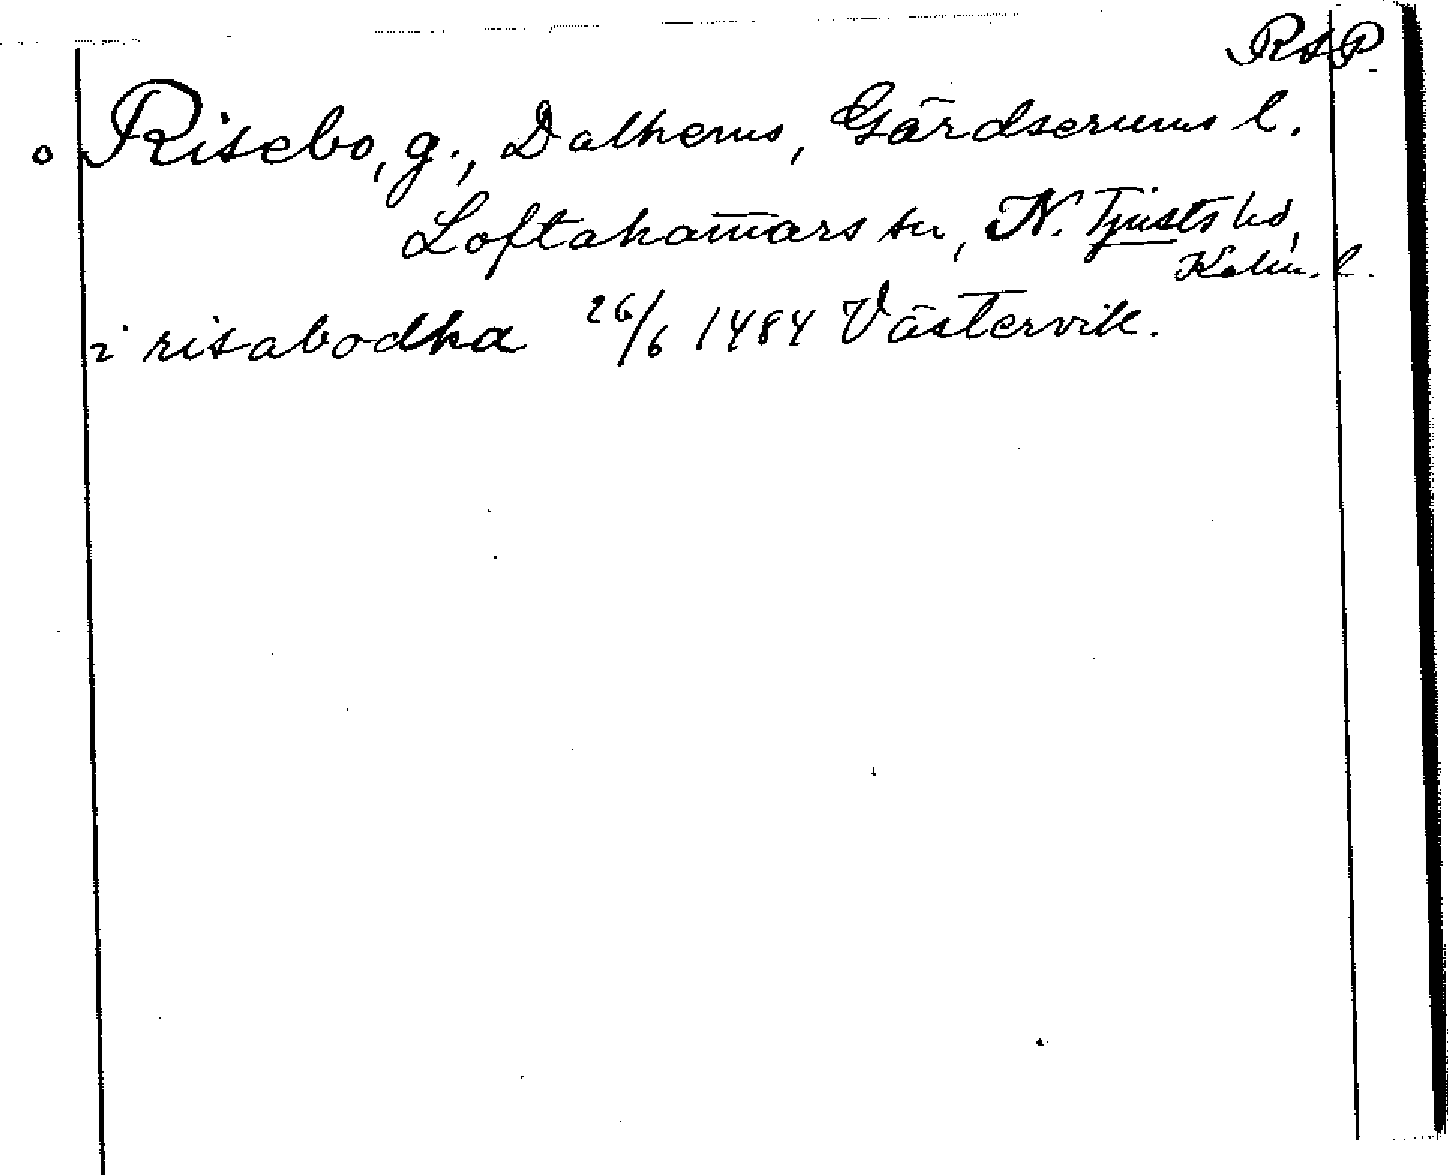 RAP.
o Risebo, g., Dalhems, Gärdserums l.
Loftaham̄ars sn, N. Tjusts hd,
Kalm. l.
i risabodha 26/6 1484 Västervik.